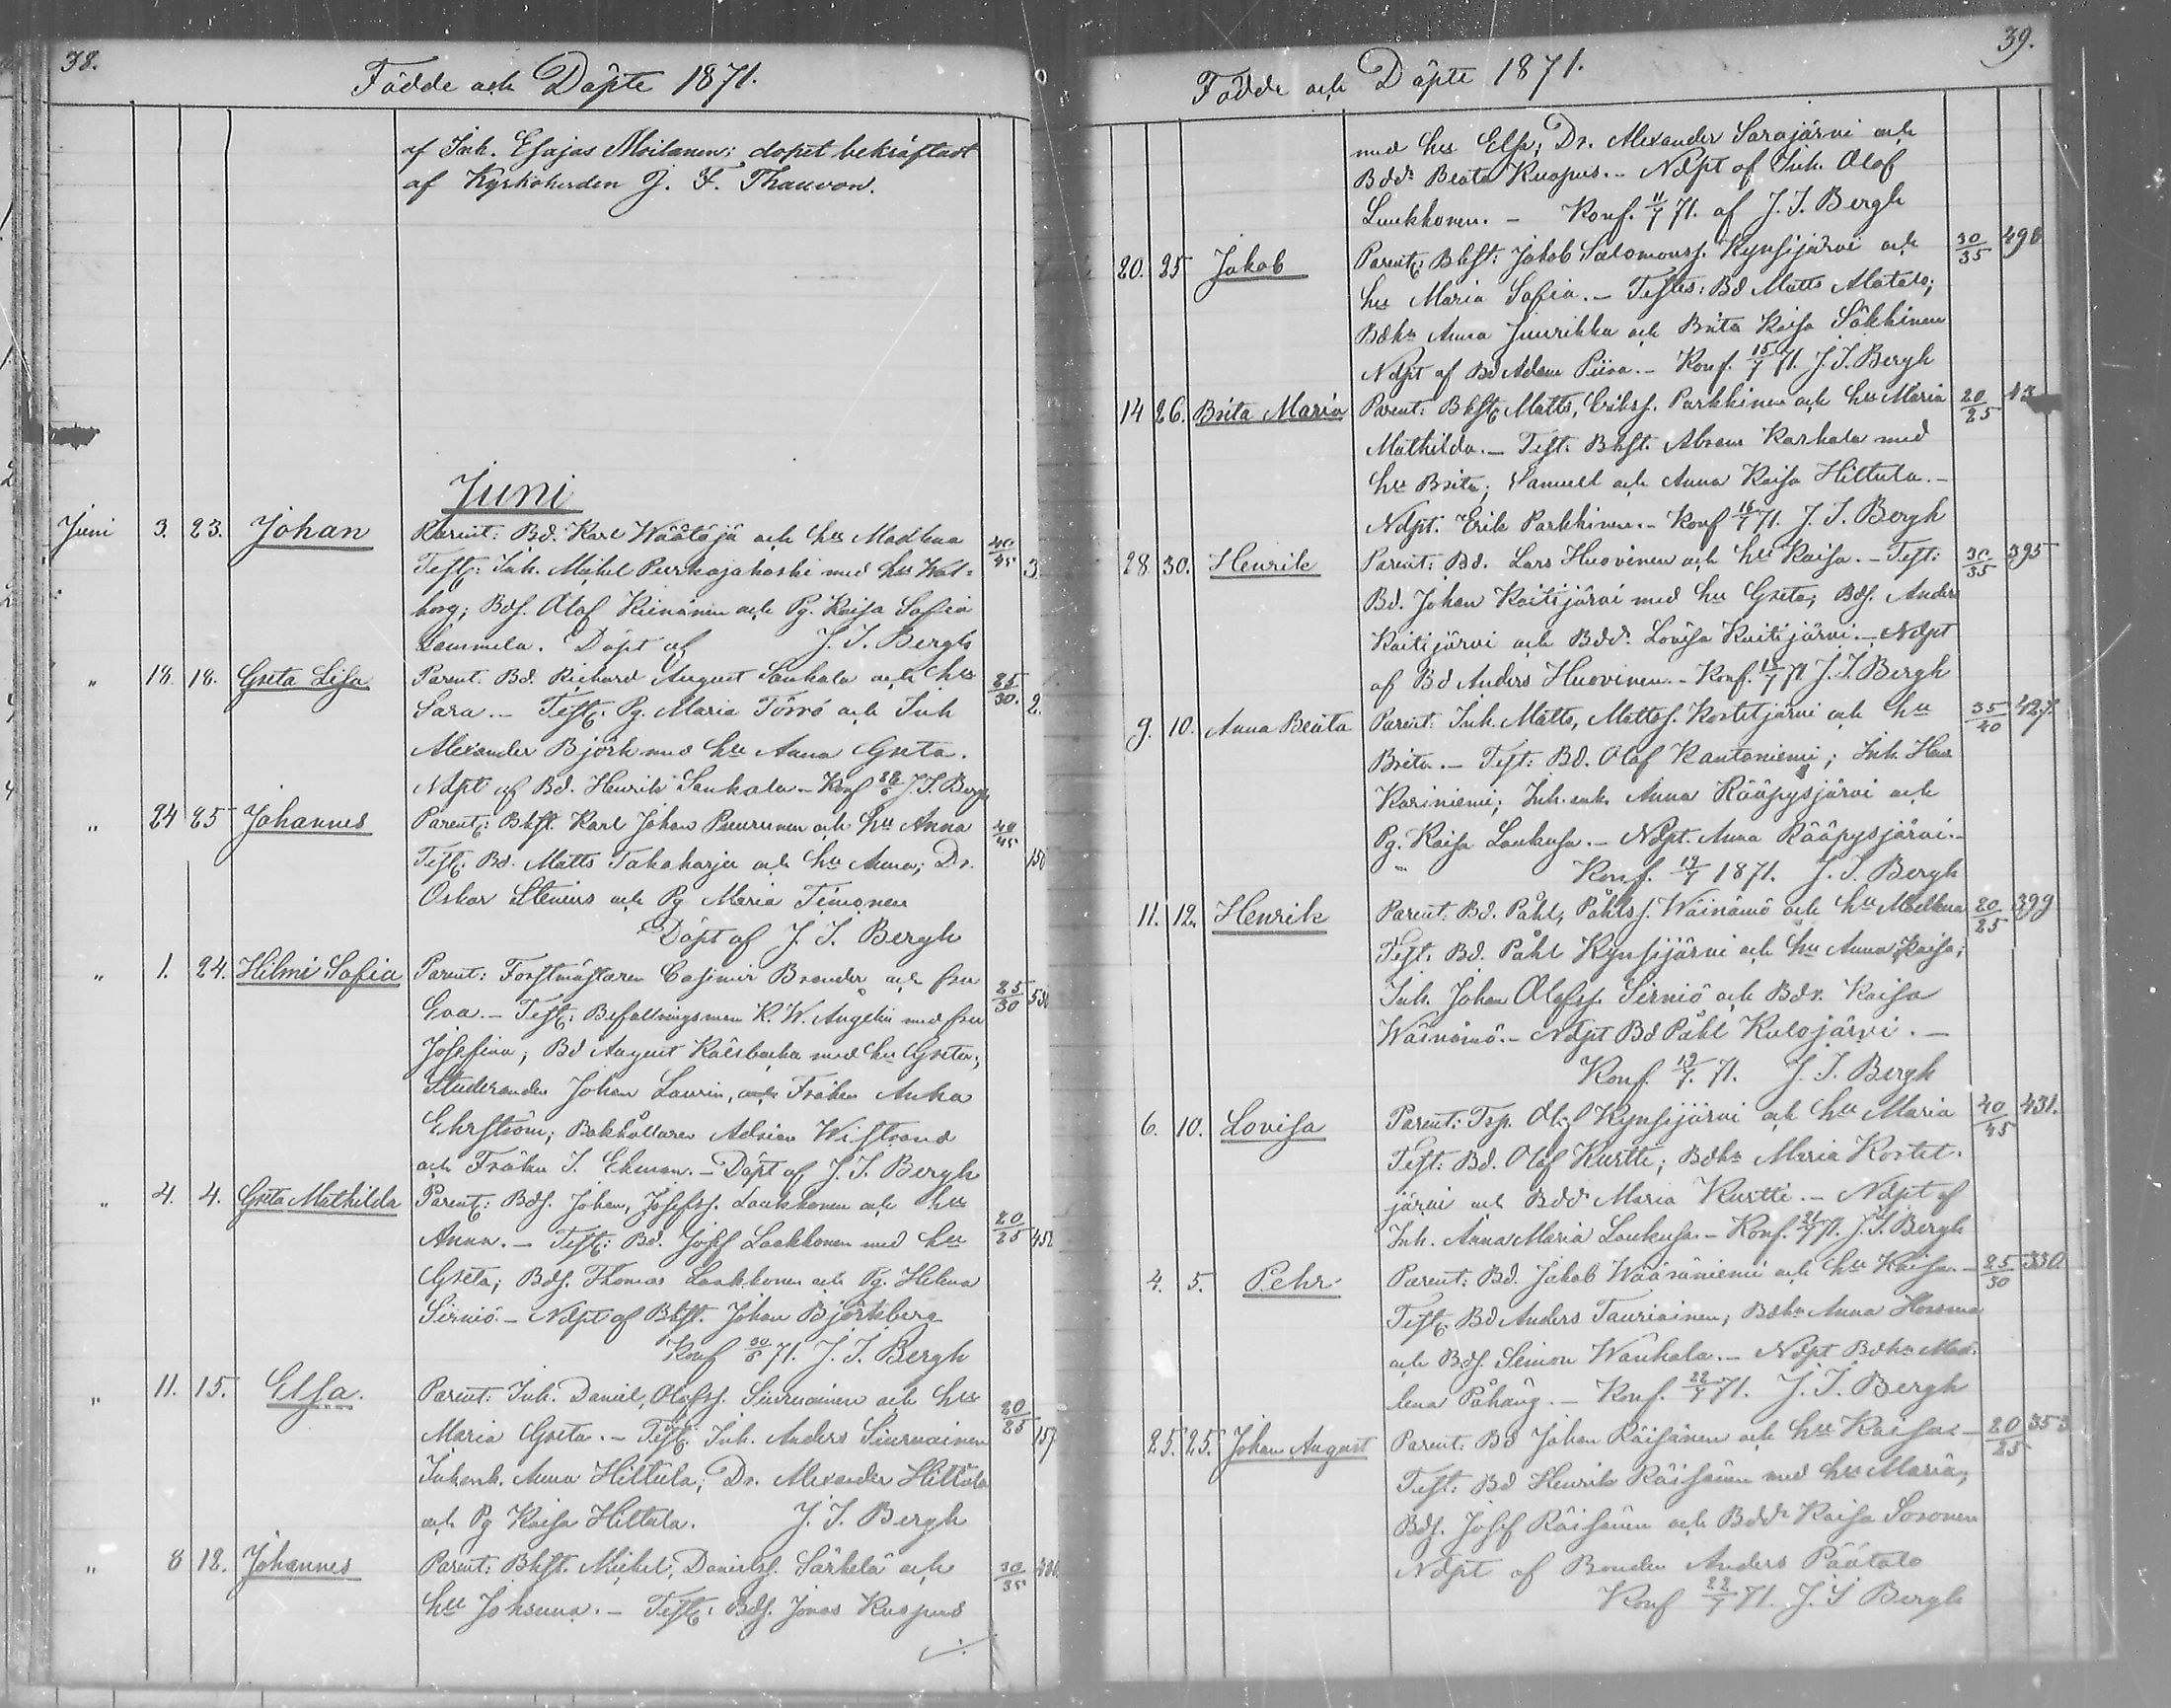 38.
Födde och Döpte 1871.
af Inh. Esajas Moilanen; dopet bekräftadt
af Kyrkoherden J. F. Thauvon.
Juni
Juni 3. 23. Johan Parent: Bd. Karl Wäätäjä och hu Madlena 40/45 3
Test: Inh. Mickel Purkajakoski med hu Wal-
borg; Bds. Olof Keinänen och Pg. Kaisa Sofia
Lammela. Döpt af J. J. Bergh
" 18. 18. Greta Lisa Parent. Bd. Richard August Sankala och hu 25/30. 2.
Sara. – Test. Pg. Maria Törrö och Inh
Alexander Björk med hu Anna Greta.
Ndpt af Bd. Henrik Sankala – Konf 28/6 J. J. Bergh
" 24 25 Johannes Parent: Bkst. Karl Johan Puurunen och hu Anna 40/45 150
Test. Bd. Matts Takaharju och hu Anna; Dr.
Oskar Stenius och Pg Maria Timonen
Döpt af J. J. Bergh
" 1. 24. Hilmi Sofia Parent: Forstmästaren Casimir Brander och fru 25/30 530
Eva. – Test: Befallningsman K. W. Angelin med fru
Josefina; Bd August med hu Greta;
Studeranden Johan Laurin, Fröken Anna
Ehrström; Bokhållaren Adrian Wistrand
och Fröken I. Ekman. – Döpt af J. J. Bergh
" 4. 4. Greta Mathilda Parent: Bds. Johan, Josefss. Laakkonen och hu 20/25 452
Anna. – Test: Bd. Josef Laakkonen med hu
Greta; Bds. Thomas Laakkonen och Pg. Helena
Sirniö. – Ndpt af Bkst. Johan Björkberg
Konf 30/6 71. J. J. Bergh
" 11. 15. Elsa. Parent: Inh. Daniel, Olofss. Siuruainen och hu 20/25 157
Maria Greta. – Test: Inh. Anders Siuruainen
Inhenk. Anna Hiltula; Dr. Alexander Hiltula
och Pg Kaisa Hiltula. J. J. Bergh
" 8 12. Johannes Parent: Bkst. Mickel, Danielss. Särkelä och 30/35
hu Johanna. – Test: Bds. Jonas Kuopus
39.
Födde och Döpte 1871.
med hu Elsa; Dr. Alexander Sarajärvi och
Bddr Beata Kuopus. – Ndpt af Inh. Olof
Lunkkonen. – Konf. 11/7 71. af J. J. Bergh
20. 25 Jakob Parent: Bkst: Jakob Salomonss. Kynsijärvi och 30/35 498
hu Maria Sofia. – Testes: Bd Matts Alatalo;
Bdhu Anna Juurikka och Brita Kaisa Säkkinen
Ndpt af Bd Adam Piira. – Konf. 15/7 71. J. J. Bergh
14 26. Brita Maria Parent: Bkst Matts, Erikss. Parkkinen och hu Maria 20/25 43
Mathilda. – Test. Bkst. Abram Karhala med
hu Brita; Samuel och Anna Kaisa Hiltula. –
Ndpt. Erik Parkkinen. – Konf 16/7 71. J. J. Bergh
28 30. Henrik Parent: Bd. Lars Huovinen och hu Kaisa. – Test: 30/35 395
Bd. Johan Kaitijärvi med hu Greta; Bds. Anders
Kaitijärvi och Bddr. Lovisa Kaitijärvi. – Ndpt
af Bd Anders Huovinen. – Konf. 15/7 71 J. J. Bergh
9. 10. Anna Beata Parent: Inh. Matts, Mattss. Kostetjärvi och hu 35/40 427.
Brita. – Test: Bd. Olof Kantoniemi; Inh. Henr
Kariniemi; Inh. enk. Anna Rääpysjärvi och
Pg. Kaisa Laukusa. – Ndpt. Anna Rääpysjärvi. –
Konf. 19/7 1871. J. J. Bergh
11. 12. Henrik Parent: Bd. Påhl, Påhlss. Wäinämö och hu Madlena 20/25 399
Test. Bd. Påhl Kynsijärvi och hu Anna Kaisa;
Inh. Johan Olofss. Sirniö och Bdr. Kaisa
Wäinämö. – Ndpt Bd Påhl Kulojärvi. –
Konf. 19/7. 71. J. J. Bergh
6. 10. Lovisa Parent: Tsp. Olof Kynsijärvi och hu Maria 40/45 431.
Test: Bd. Olof Kurtti; Bdhu Maria Kostet-
järvi och Bddr Maria Kurtti. – Ndpt af
Inh. Anna Maria Laukusa. – Konf. 21/7 71. J. J. Bergh
4. 5. Pehr Parent: Bd. Jakob Wääräniemi och hu Kaisa. – 25/30 330
Test. Bd Anders Tauriainen; Bdhu Anna Horsma
och Bds. Simon Wankala. – Ndpt Bdhu Mad-
lena Påhäng. – Konf. 22/7 71. J. J. Bergh
25. 25. Johan August Parent: Bd Johan Räisänen och hu Kaisa. – 20/25 353
Test: Bd Henrik Räisänen med hu Maria;
Bds. Josef Räisänen och Bddr Kaisa Soronen
Ndpt af Bonden Anders Päätalo
Konf 22/7 71. J. J Bergh